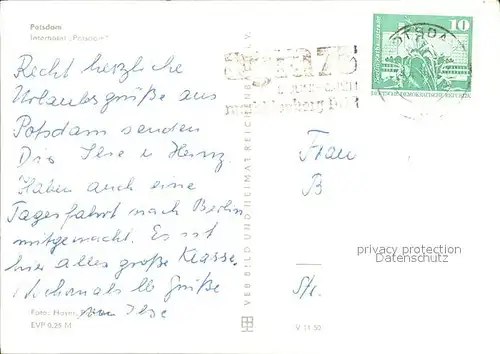 Potsdam
Interhotel „Potsdam“
Recht herzliche
Urlaubsgrüße aus
Potsdam senden
Dir Ilse u Heinz.
Haben auch eine
Tagesfahrt nach Berlin
mitgemacht. Es ist
hier alles große Klasse.
Nochmals lb Grüße
von Ilse
Foto:
EVP 0,25 M
VEB BILD UND HEIMAT REICHENBACH I. V.
V 11 50
10
Frau
B
Str.
privacy protection
Datenschutz